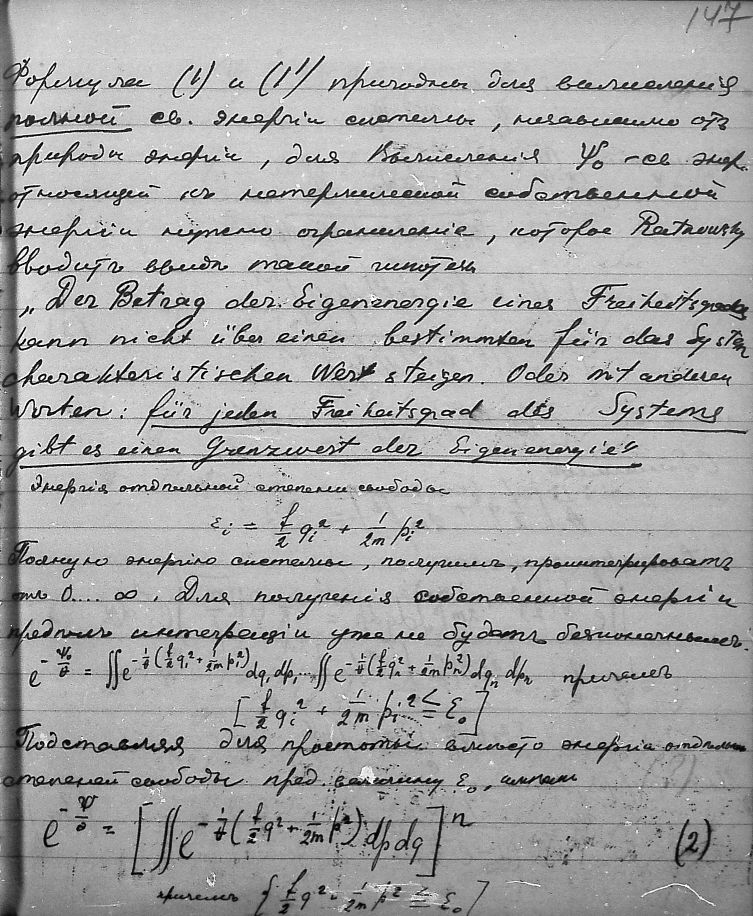 147
Формулы (1) и (1') пригодны для вычисления
полной св. энергіи системы, независимо отъ
природы энергіи, для вычисленія Ψ₀ - св. энер.
относящей къ нетермической собственной
энергіи нужно ограниченіе, которое Ratnowsky
вводитъ ввидѣ такой гипотезы
„Der Betrag der Eigenenergie eines Freiheitsgrades
kann nicht über einen bestimmten für das System
charakteristischen Wert steigen. Oder mit anderen
Worten: für jeden Freiheitsgrad des Systems
gibt es einen Grenzwert der Eigenenergie"
Энергія отдѣльной степени свободы
ε_i = f/2 q_i² + 1/2m p_i²
Полную энергію системы, получимъ, проинтегрировавъ
отъ 0.... ∞. Для полученія собственной энергіи
предѣлъ интеграціи уже не будетъ безконечнымъ.
e^{-Ψ₀/θ} = ∬e^{-1/θ(f/2 q₁² + 1/2m p₁²)}dq₁dp₁...∬e^{-1/θ(f/2 q_n² + 1/2m p_n²)}dq_n dp_n причемъ
[f/2 q_i² + 1/2m p_i² ≤ ε₀]
Подставляя для простоты вмѣсто энергіи отдѣльн
степеней свободы пред. величину ε₀, имѣемъ
e^{-Ψ/θ} = [∬e^{-1/θ(f/2 q² + 1/2m p²)}dpdq]^n (2)
причемъ [f/2 q² + 1/2m p² ≤ ε₀]